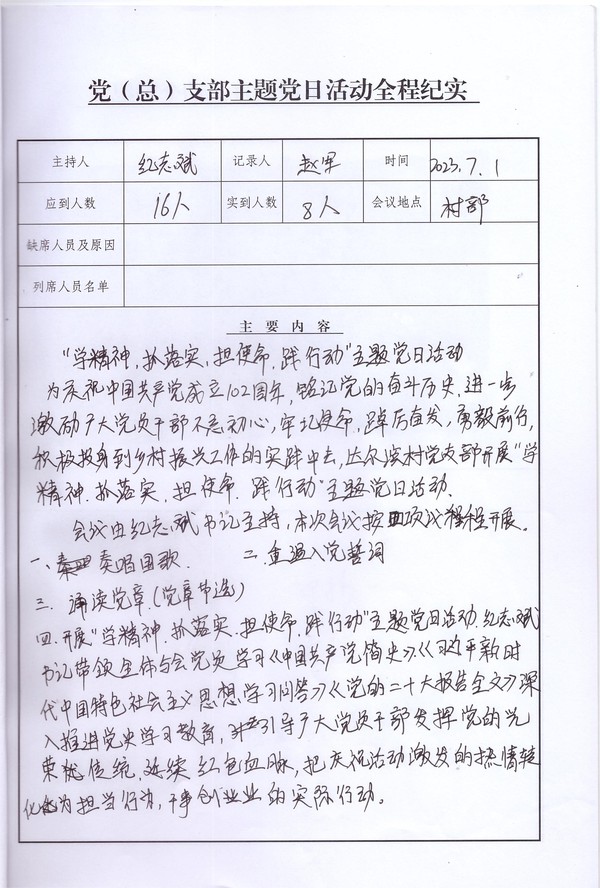 党（总）支部主题党日活动全程纪实
主持人 纪志斌 记录人 赵军 时间 2023.7.1
应到人数 16人 实到人数 8人 会议地点 村部
缺席人员及原因
列席人员名单
主要内容
“学精神，抓落实，担使命，践行动”主题党日活动
为庆祝中国共产党成立102周年，铭记党的奋斗历史，进一步
激励广大党员干部不忘初心，牢记使命，踔厉奋发，勇毅前行，
积极投身到乡村振兴工作的实践中去，达尔滨村党支部开展“学
精神．抓落实，担使命．践行动”主题党日活动．
会议由纪志斌书记主持，本次会议按四项议程开展．
一、奏唱国歌． 二．重温入党誓词
三．诵读党章．（党章节选）
四．开展“学精神．抓落实．担使命．践行动”主题党日活动．纪志斌
书记带领全体与会党员学习《中国共产党简史》《习近平新时
代中国特色社会主义思想学习问答》《党的二十大报告全文》深
入推进党史学习教育，引导广大党员干部发挥党的光
荣优传统，延续红色血脉，把庆祝活动激发的热情转
化为担当行为，干事创业的实际行动。